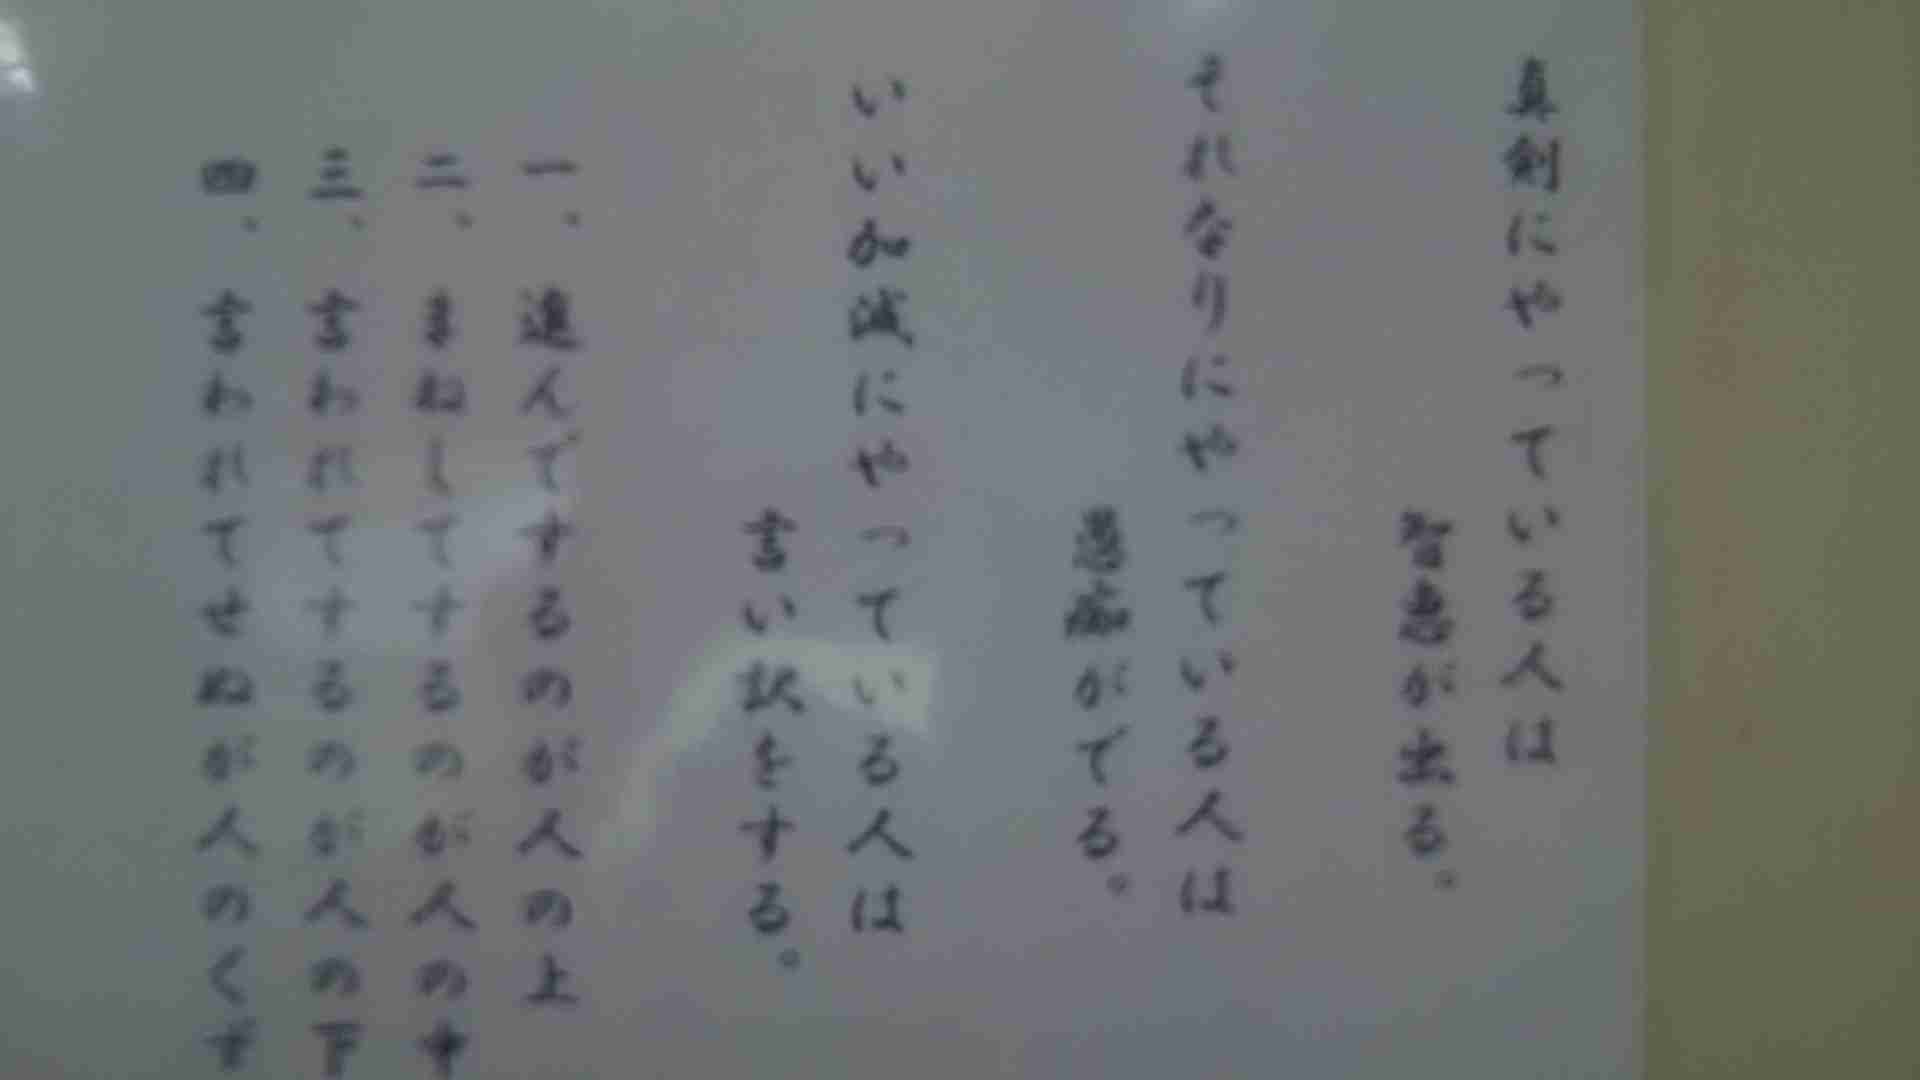 真剣にやっている人は
智恵が出る。
それなりにやっている人は
愚痴がでる。
いい加減にやっている人は
言い訳をする。
一、進んでするのが人の上
二、まねしてするのが人の中
三、言われてするのが人の下
四、言われてせぬが人のくず